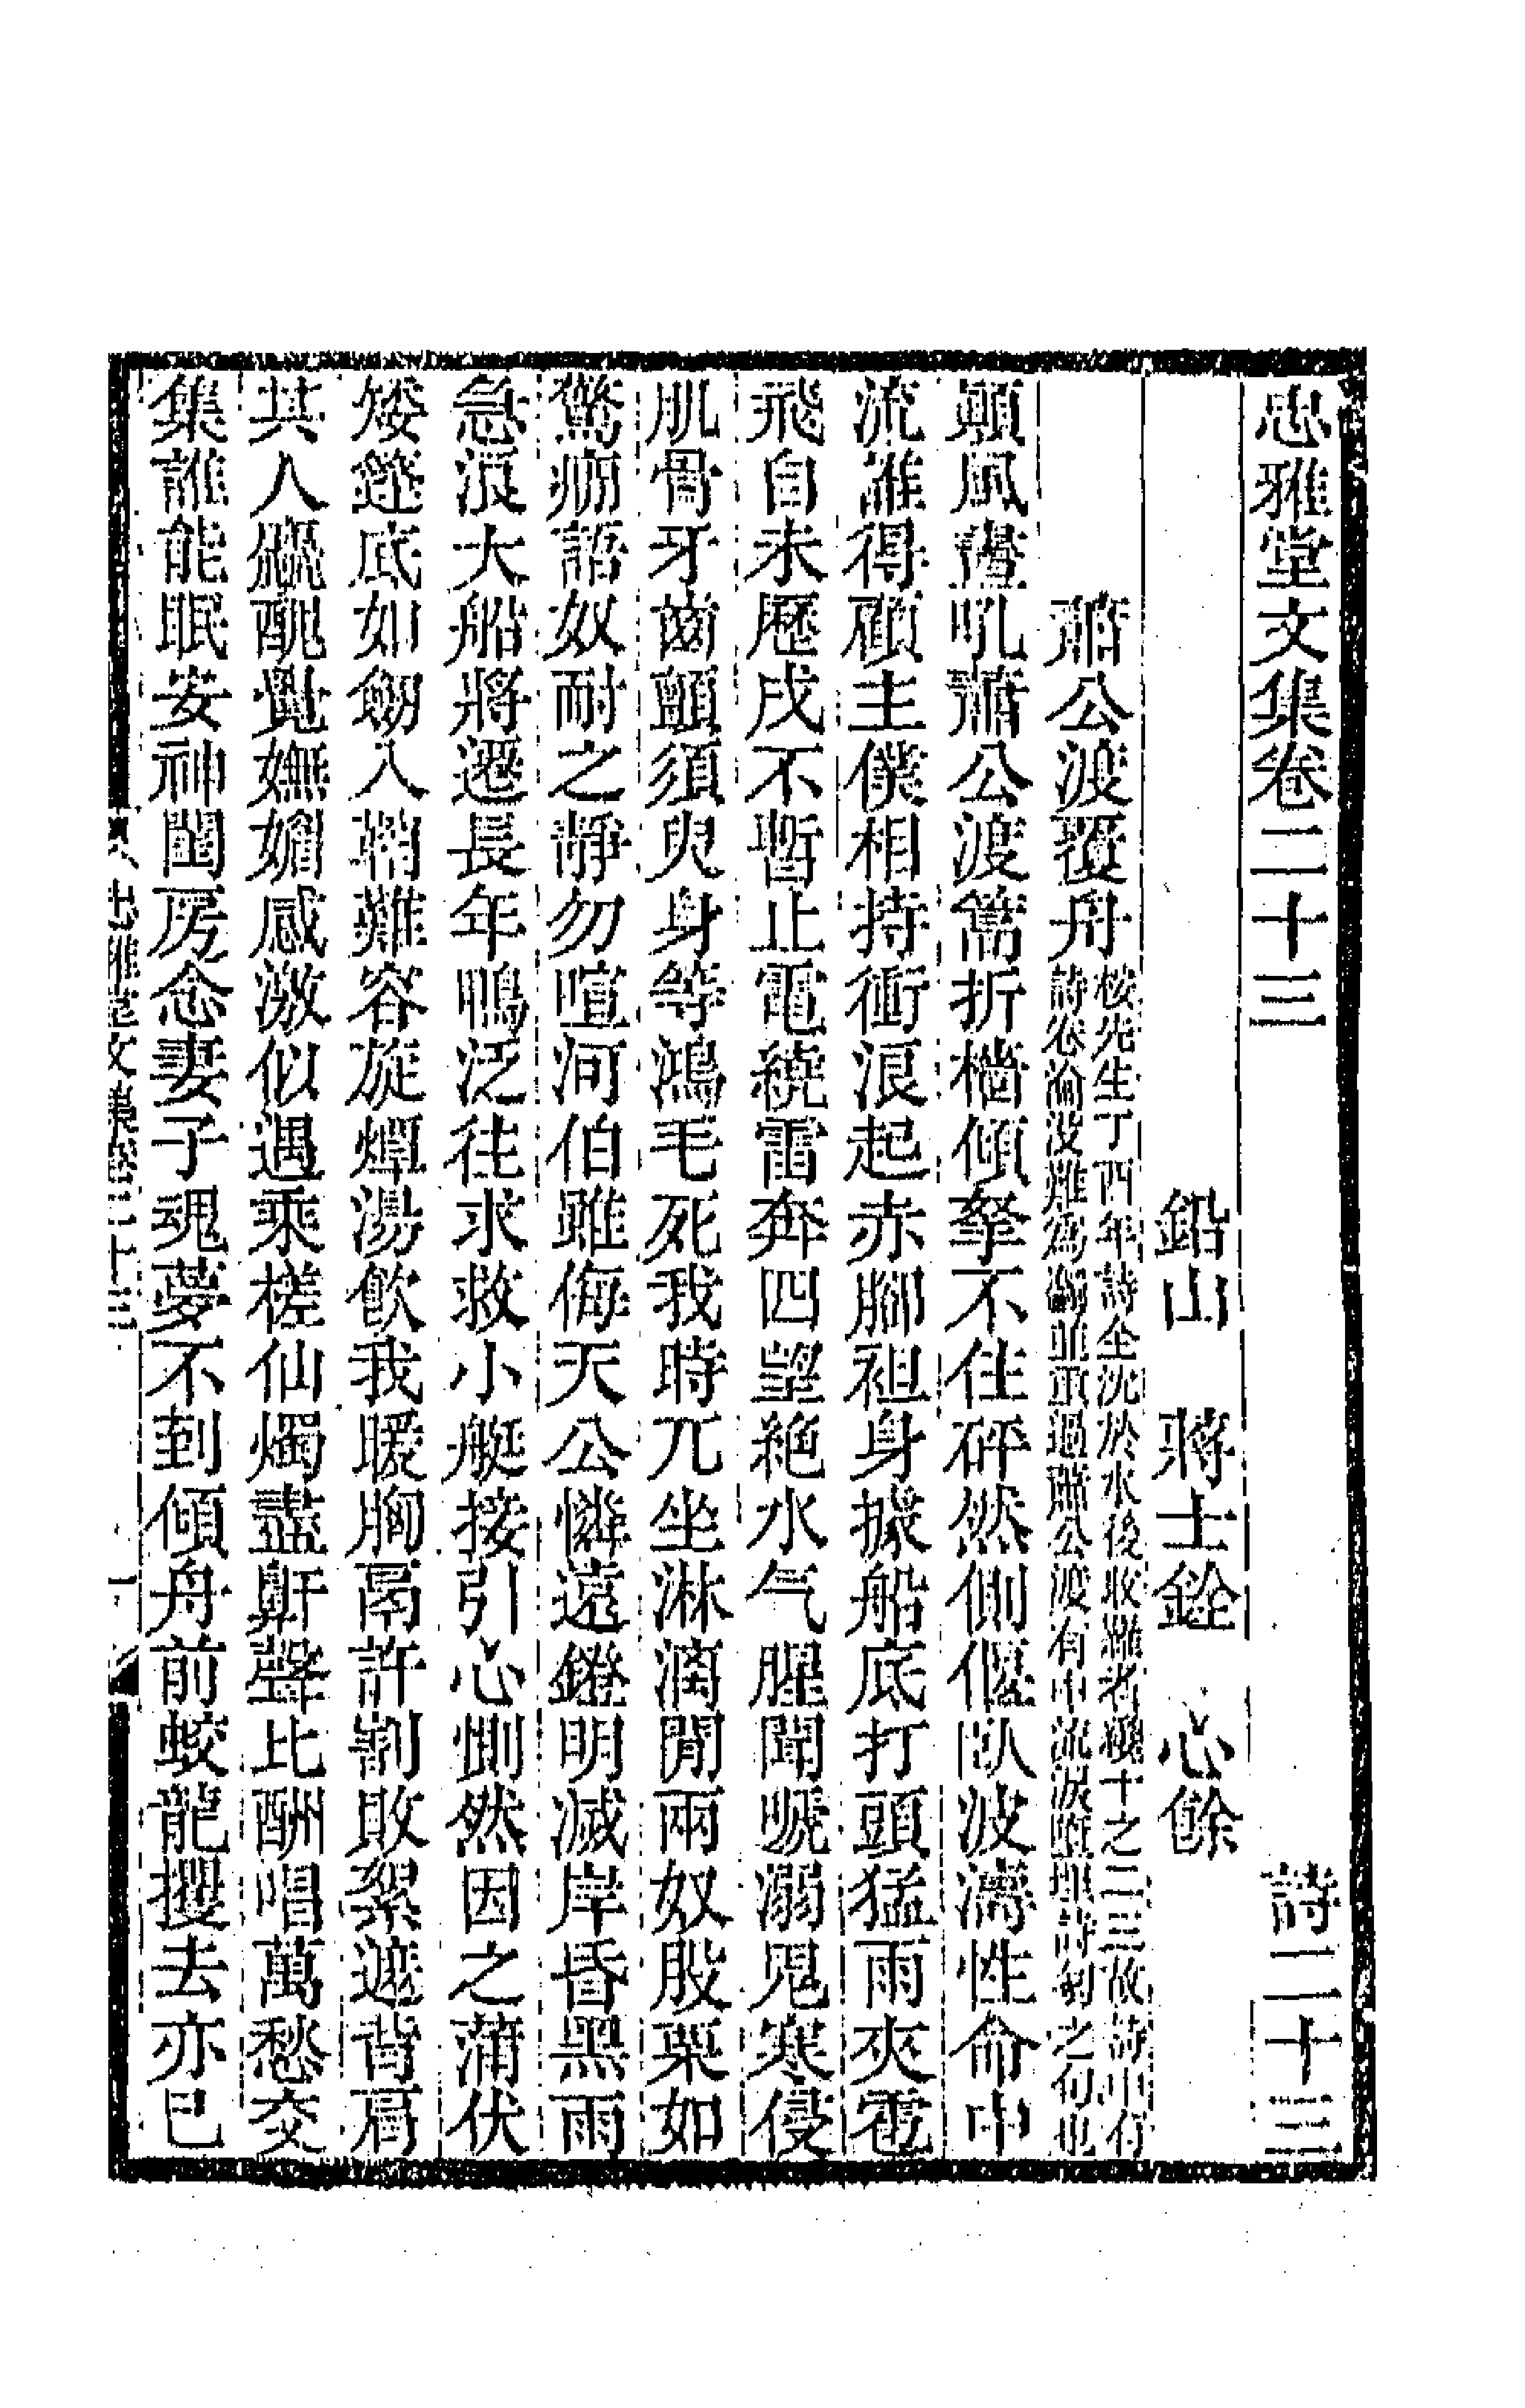 忠雅堂文集卷二十三　詩二十三
鉛山　蔣士銓　心餘
蕭公渡覆舟
桉先生丁酉年詩全沈於水後收羅者纔十之二三故詩中有
詩卷淪沒難爲鄰並重過蕭公渡有中流淚墮埋詩匊之句也
顚風蠥吼蕭公渡篙折檣傾拏不住砰然側偃臥波濤性命中
流誰得顧主僕相持衝浪起赤腳袒身據船底打頭猛雨夾雹
飛自未歷戌不暫止電繞雷奔四望絕水气腥聞號溺鬼寒侵
肌骨牙齒顫須臾身等鴻毛死我時兀坐淋漓閒兩奴股栗如
驚痾語奴耐之靜勿喧河伯雖侮天公憐遠鐙明滅岸昏黑雨
急浪大船將遷長年鳴泛往求救小艇接引心惻然因之蒲伏
矮篷底如劒入鞘難容旋燂湯飮我暖胸鬲許割敗絮遮背肩
其人貌醜覺嫵媚感激似遇乘槎仙燭盡鼾聲比酬唱萬愁交
集誰能眠妥神閨房念妻子魂夢不到傾舟前蛟龍攫去亦已
忠雅堂文集卷二十三　一